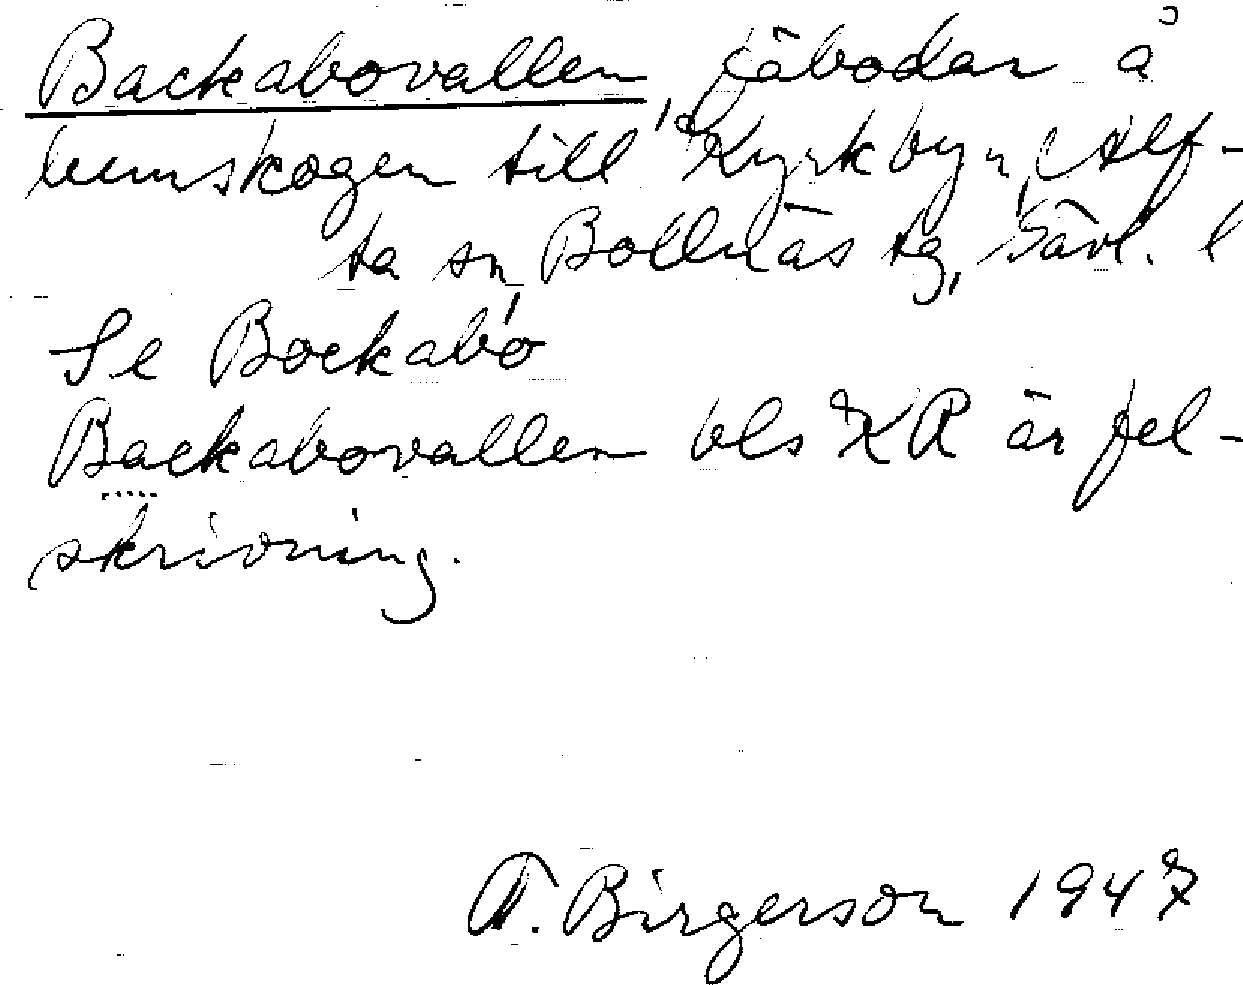 Backabovallen, fäbodar å
hemskogen till Kyrkbyn, Alf-
ta sn, Bollnäs tg, Gävl. l
Se Bockabo
Backabovallen bls XR är fel-
skrivning.
F. Birgerson 1947